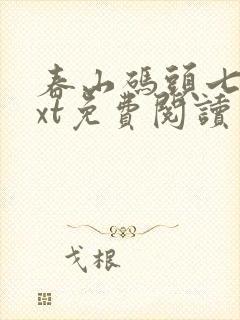 春山碼頭七
xt免費閱讀
戈根